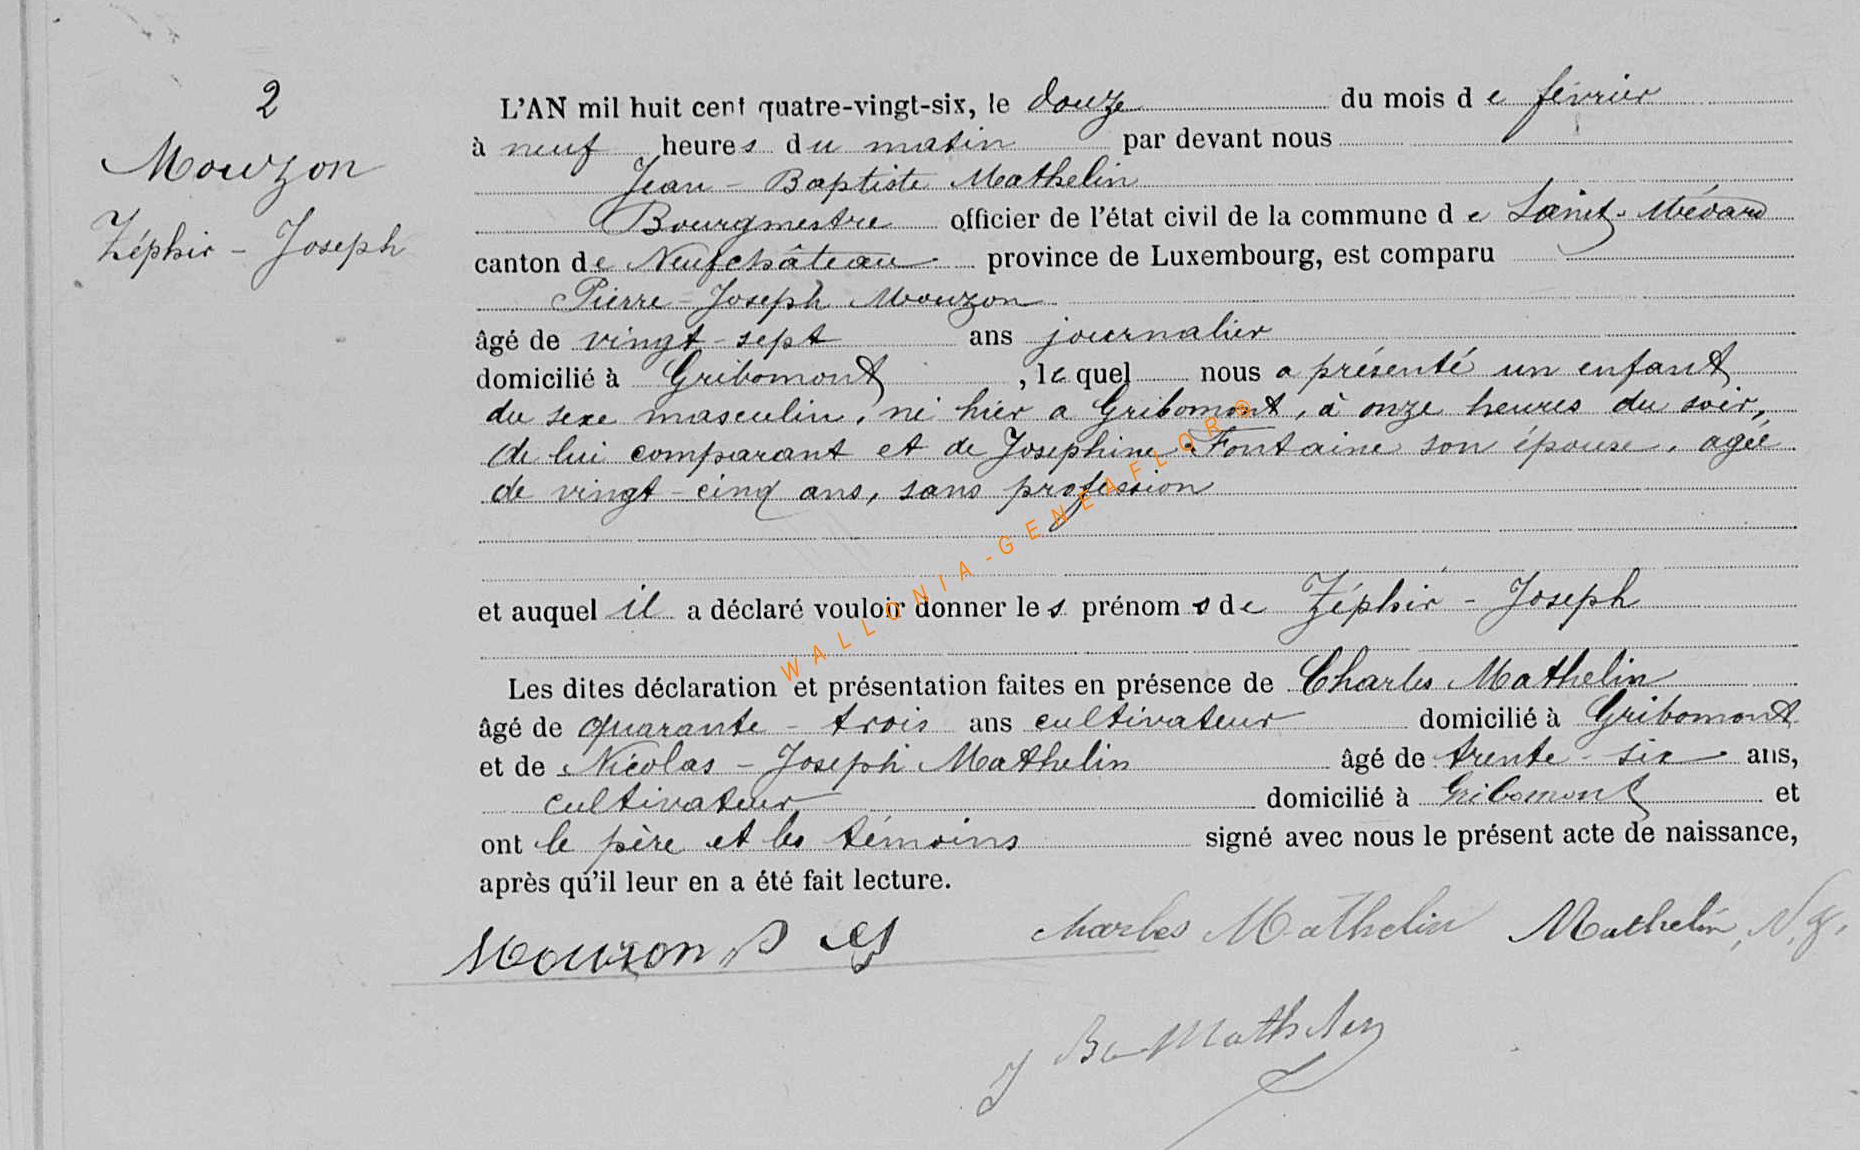 2
Mouzon
Zéphir - Joseph
L'AN mil huit cent quatre-vingt-six, le douze du mois de février
à neuf heures du matin par devant nous
Jean - Baptiste Mathelin
Bourgmestre officier de l'état civil de la commune de Saint-Médard
canton de Neufchâteau province de Luxembourg, est comparu
Pierre - Joseph Mouzon
âgé de vingt-sept ans journalier
domicilié à Gribomont, lequel nous a présenté un enfant
du sexe masculin, né hier a Gribomont, à onze heures du soir,
de lui comparant et de Josephine Fontaine son épouse, agée
de vingt-cinq ans, sans profession
et auquel il a déclaré vouloir donner les prénoms de Zéphir - Joseph
Les dites déclaration et présentation faites en présence de Charles Mathelin
âgé de quarante - trois ans cultivateur domicilié à Gribomont
et de Nicolas - Joseph Mathelin âgé de trente - six ans,
cultivateur domicilié à Gribomont et
ont le père et les témoins signé avec nous le présent acte de naissance,
après qu'il leur en a été fait lecture.
Mouzon p Charles Mathelin Mathelin, N.J.
J Bte Mathelin
WALLONIA-GENEAFLOR®